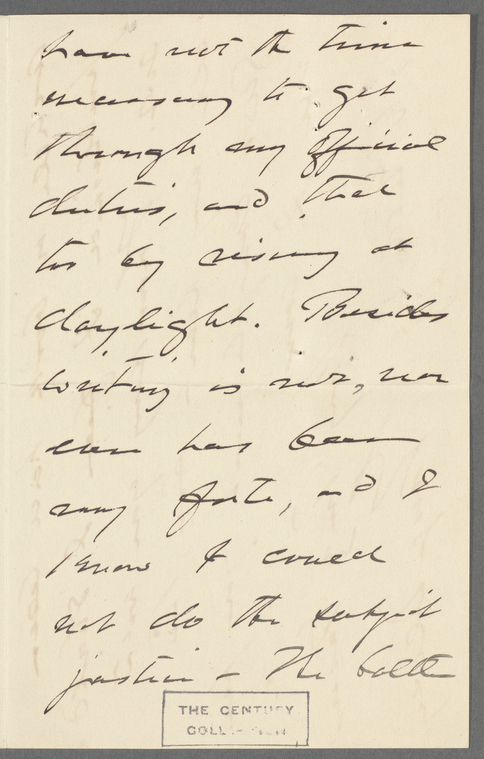 have not the time
necessary to get
through my official
duties, and that
too by rising at
daylight. Besides
writing is not, nor
ever has been
my forte, and I
know I could
not do the subject
justice – The battle
THE CENTURY
COLLECTION